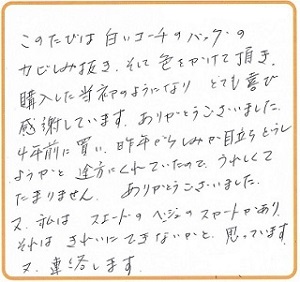 このたびは白いコーチのバッグの
カビしみ抜き、そして色をかけて頂き、
購入した当初のようになり とても喜び
感謝しています。ありがとうございました。
4年前に買い、昨年からしみが目立ちどうし
ようかと 途方にくれていたので、うれしくて
たまりません。 ありがとうございました。
又、私は スエードのベージュのスカートがあり、
それは きれいにできないかと、思っています。
又、連絡します。